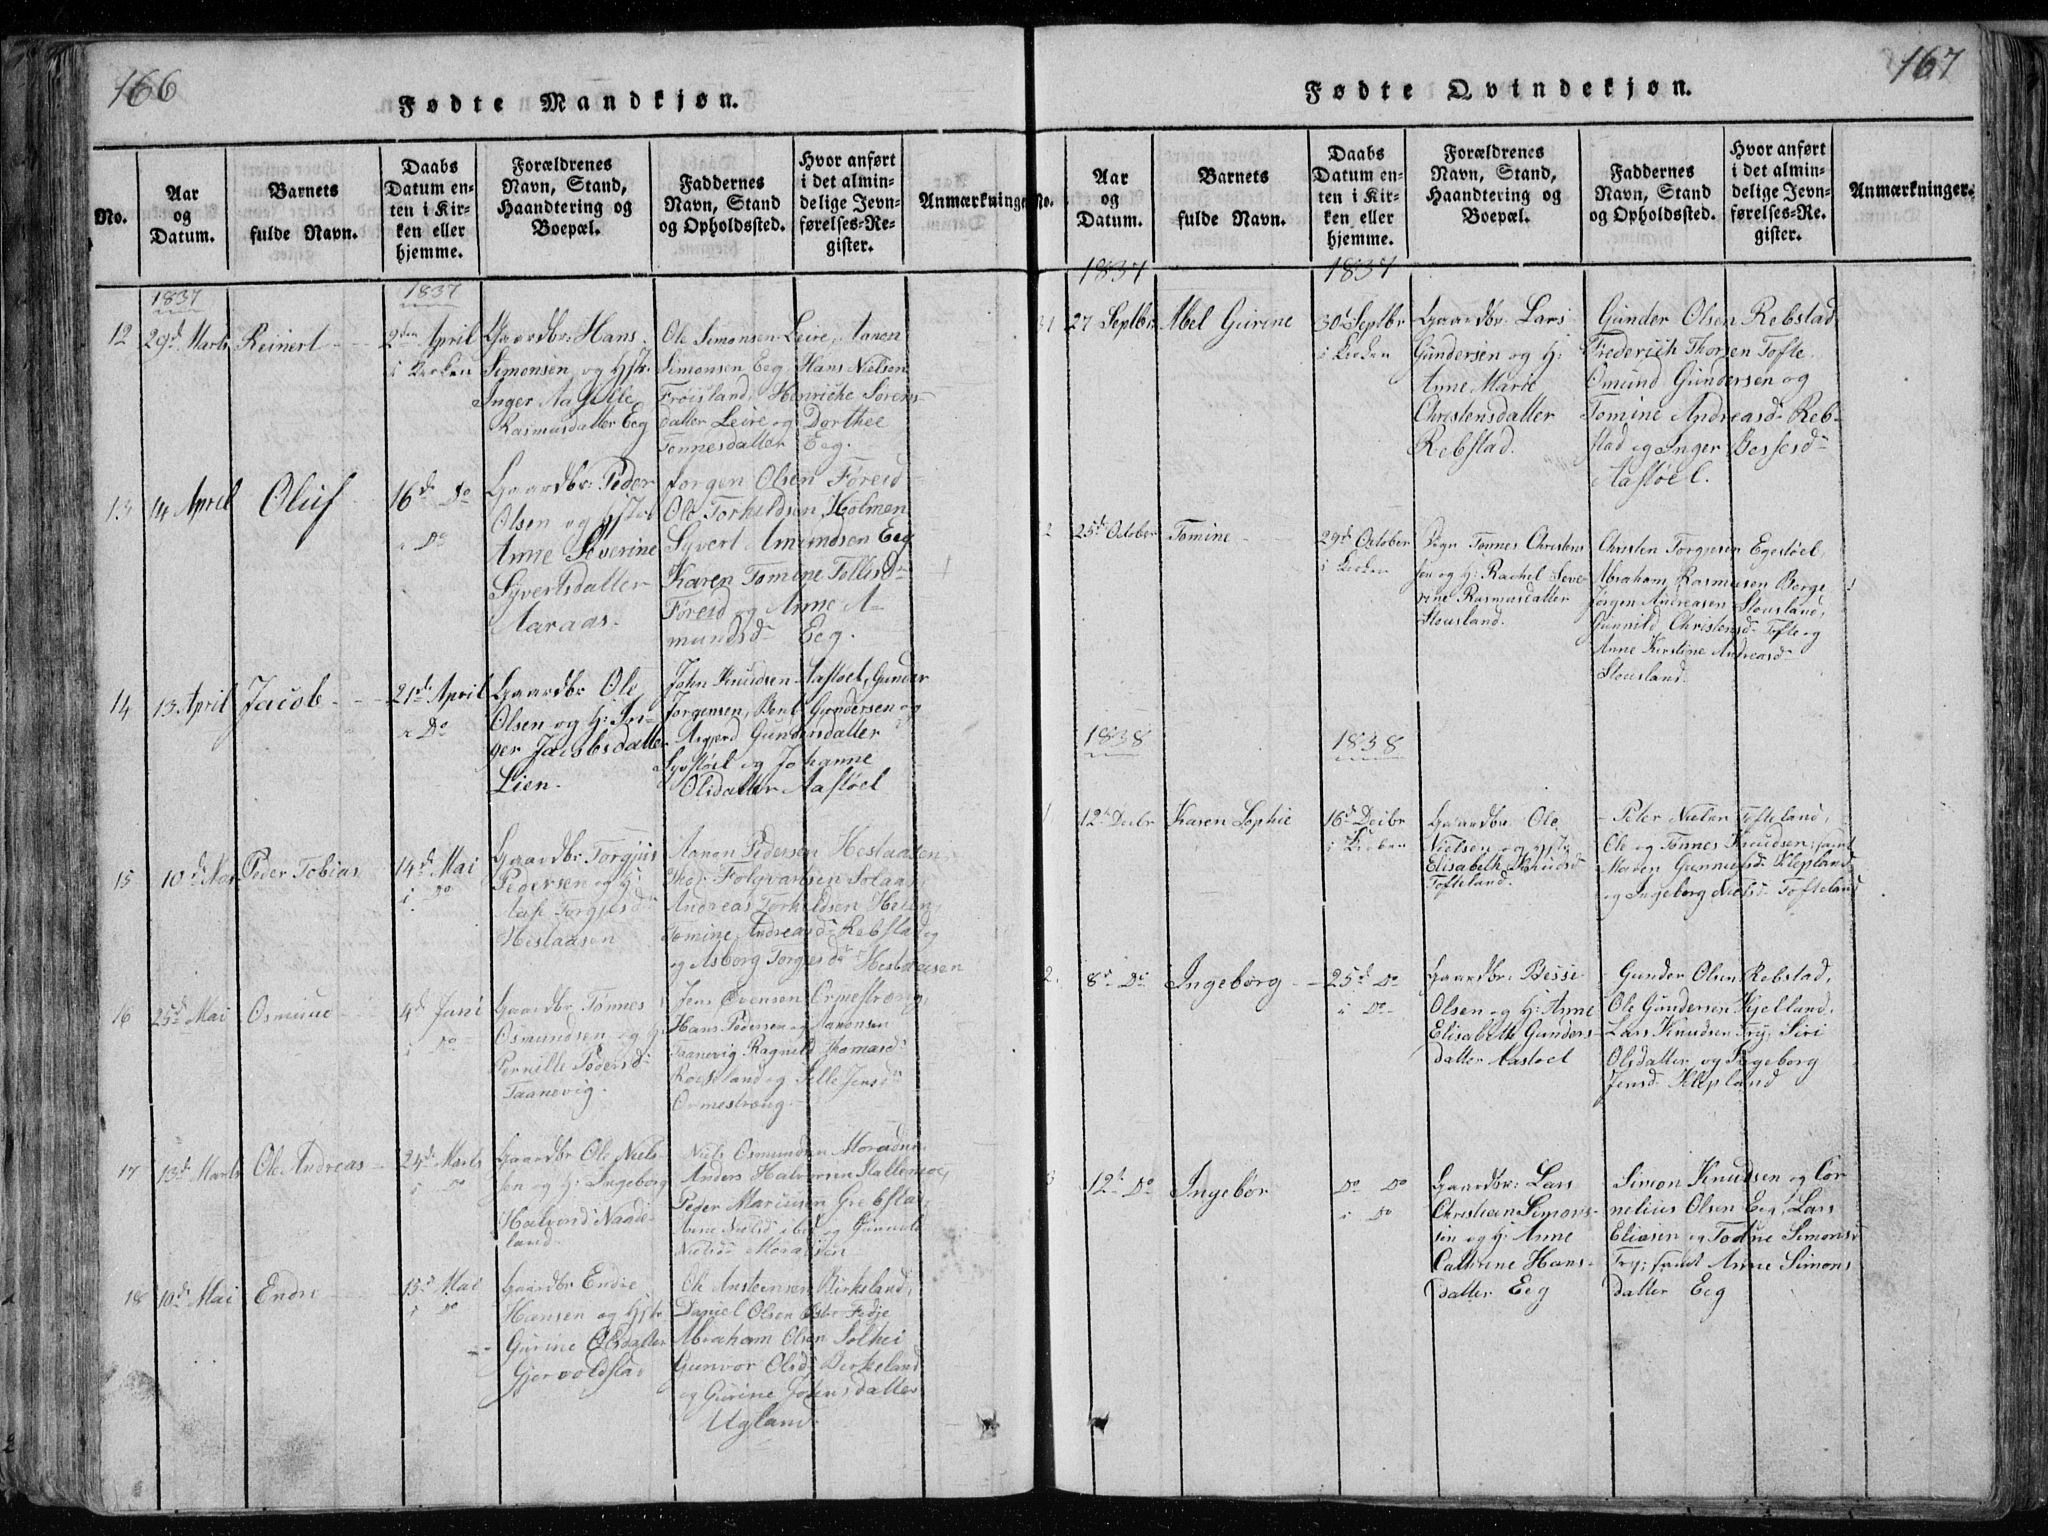 166
Fødte Mandkjøn.
No.
Aar
og
Datum.
Barnets
fulde Navn.
Daabs
Datum en-
ten i Kir-
ken eller
hjemme.
Forældrenes
Navn, Stand,
Haandtering og
Boepæl.
Faddernes
Navn, Stand
og Opholdssted.
Hvor anført
i det almin-
delige Jevn-
førelses-Re-
gister.
Anmærkninger
1837
1837
12
29d Marts
Reinert
2den April
i Kirken
Gaardbr: Hans
Simonsen og Hstr:
Inger
Rasmusdatter Eeg
Ole Simonsen Leire, Aanon
Simonsen Eeg, Hans Nielsen
Frøisland, Henriche Sørens-
datter Leire og Dorthee
Tønnesdatter Eeg.
13
14 April
Oluf
16d Do
i Do
Gaardbr: Peder
Olsen og Hstr:
Anne Severine
Syvertsdatter
Aaraas.
Jørgen Olsen Føreid
Ole Torkildsen Holmen
Syvert Amundsen Eeg
Karen Tomine Tellisd
Føreid og Anne A-
mundsd Eeg.
14
13 April
Jacob
21d April
i Do
Gaardbr Ole
Olsen og H: In-
ger Jacobsdatter
Lien.
John Knudsen Aastøel, Gunder
Jørgensen, Bent Gundersen og
Asgjerd Gundersdatter
Syvstøel og Johanne
Olsdatter Aastøel
15
10d Mai
Peder Tobias
14d Mai
i Do
Gaardbr: Torgjus
Pedersen og H:
Aase Torgjusd
Heslaasen
Aanon Pedersen Heslaasen,
Thor Folqvarsen Solaas
Andreas Torkildsen Heien,
Tomine Andreasd Rebstad og
og Asborg Torgjusd Heslaasen
16
25d Mai
Osmund
4d Juni
i Do
Gaardbr Tønnes
Osmundsen og H:
Pernille Pedersd
Taanevig.
Jens Evensen Ormestrong,
Hans Pedersen og Aanonsen
Taanevig Ragnild Thomasd
Røiseland og Sille Jensd
Ormestrong.
17
13d Marts
Ole Andreas
24d Marts
i Do
Gaardbr Ole Niel-
sen og H: Ingeborg
Halvorsd Naade-
land.
Niels Osmundsen Moraasen
Anders Halvorsen Stallemoe,
Peder Mariusen Grebstad,
Anne Nielsd ibid og Gunvald
Nielsd Moraasen
18
10d Mai
Endre
15d Mai
i Do
Gaardbr Endre
Hansen og Hstr
Gurine Olsdatter
Gjervoldstad
Ole Anstensen Birkeland,
Daniel Olsen Øster Fidje
Abraham Olsen Solhei
Gunvor Olsd Birkeland
og Gurine Johnsdatter
Ugland.
167
Fødte Qvindekjøn.
No.
Aar
og
Datum.
Barnets
fulde Navn.
Daabs
Datum en-
ten i Kir-
ken eller
hjemme.
Forældrenes
Navn, Stand,
Haandtering og
Boepæl.
Faddernes
Navn, Stand
og Opholdssted.
Hvor anført
i det almin-
delige Jevn-
førelses-Re-
gister.
Anmærkninger.
1837
1837
27 Septbr
Abel Gurine
30d Septbr
i Kirken
Gaardbr: Lars
Gundersen og H:
Anne Marie
Christensdatter
Rebstad.
Gunder Olsen Rebstad
Frederich Thorsen Tofte
Omund Gundersen og
Tomine Andreasd Reb-
stad og Inger Bessesd
Aastøel.
2
25d October
Tomine
29d October
i Kirken
Tønnes Christen
sen og H: Rachel Seve-
rine Rasmusdatter
Stousland.
Christen Torgusen Egestøel,
Abraham Rasmusen Berge
Jørgen Andreasen Stousland,
Gunnild Christensd Tofte og
Anne Kirstine Andreasd
Stousland.
1838
1838
1.
12te Decbr
Karen Sophie
16d Decbr
i Kirken
Gaardbr Ole
Nielsen og Hstr
Elisabeth Knudsd
Tofteland.
Peter Nielsen Tofteland,
Ole og Tønnes Knudsen, samt
Maren Gunnulsd Klepland
og Ingeborg Nielsd Tofteland
2.
8d Do
Ingeborg
25d Do
i Do
Gaardbr: Besse
Olsen og H: Anne
Elisabeth Gunders-
datter Aastøel
Gunder Olsen Rebstad,
Ole Gundersen Kjelland,
Lars Knudsen Try, Siri
Olsdatter og Ingeborg
Jensd Klepland
3
12t Do
Ingebor
Do Do
i Do
Gaardbr: Lars
Christian Simons-
sen og H: Anne
Cathrine Hans-
datter Eeg
Simon Knudsen og Cor
nelius Olsen Eeg, Lars
Eliasen og Todne Simonsd
Try, samt Anne Simons
datter Eeg